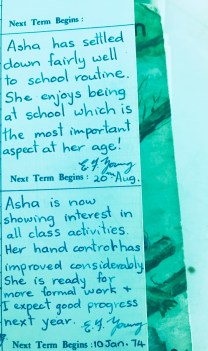 Next Term Begins :
Asha has settled
down fairly well
to school routine.
She enjoys being
at school which is
the most important
aspect at her age!
E. J. Young
Next Term Begins : 20th Aug.
Asha is now
showing interest in
all class activities.
Her hand control has
improved considerably
She is ready for
more formal work &
I expect good progress
next year. E. J. Young
Next Term Begins : 10 Jan. 74